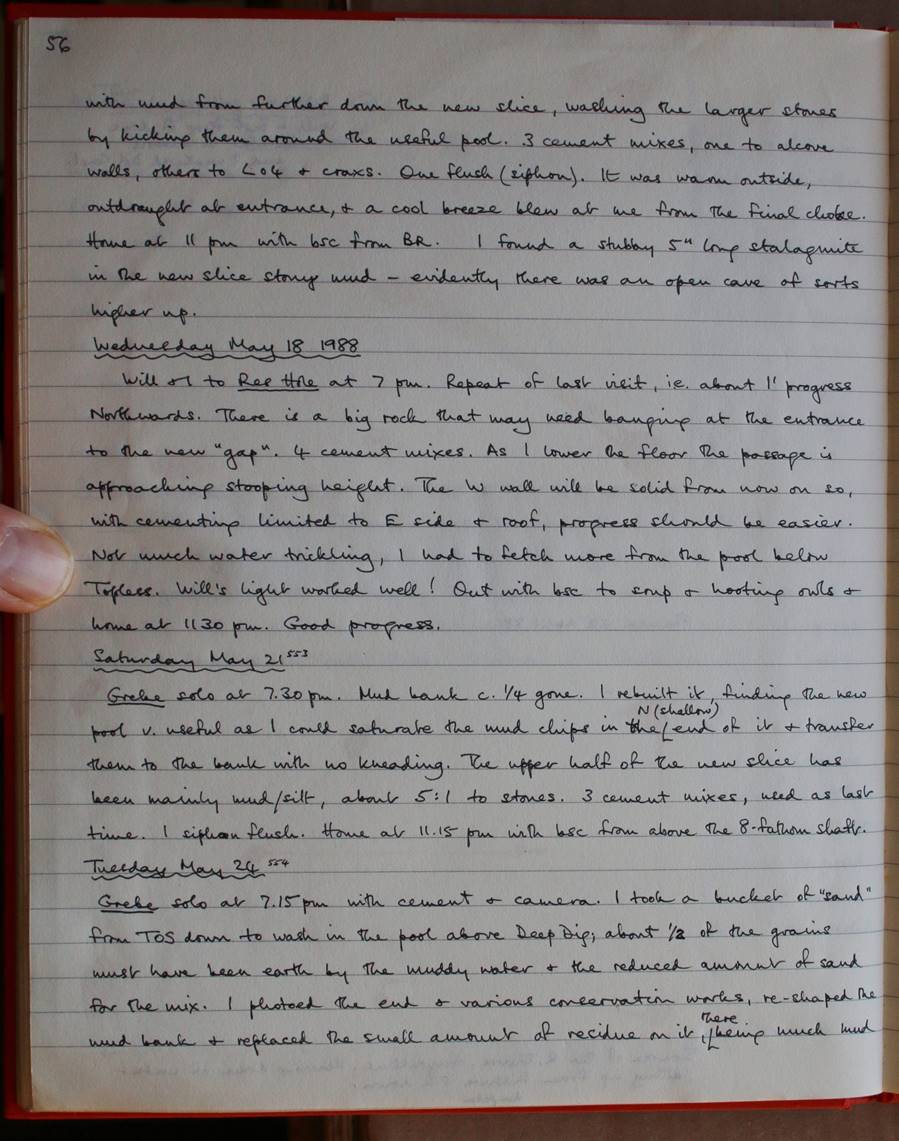 56
with mud from further down the new slice, washing the larger stones
by kicking them around the useful pool. 3 cement mixes, one to alcove
walls, others to L o 4 + craxs. One flush (siphon). It was warm outside,
outdraught at entrance, + a cool breeze blew at me from the final choke.
Home at 11 pm with bsc from BR. I found a stubby 5" long stalagmite
in the new slice stony mud - evidently there was an open cave of sorts
higher up.
Wednesday May 18 1988
Will + I to Ree Hole at 7 pm. Repeat of last visit, ie. about 1' progress
Northwards. There is a big rock that may need banging at the entrance
to the new "gap". 4 cement mixes. As I lower the floor the passage is
approaching stooping height. The W wall will be solid from now on so,
with cementing limited to E side + roof, progress should be easier.
Not much water trickling, I had to fetch more from the pool below
Topless. Will's light worked well! Out with bsc to soup + hooting owls +
home at 1130 pm. Good progress.
Saturday May 21 553
Grebe solo at 7.30 pm. Mud bank c. 1/4 gone. I rebuilt it, finding the new
pool v. useful as I could saturate the mud chips in the N (shallow) end of it + transfer
them to the bank with no kneading. The upper half of the new slice has
been mainly mud/silt, about 5:1 to stones. 3 cement mixes, used as last
time. 1 siphon flush. Home at 11.15 pm with bsc from above the 8-fathom shaft.
Tuesday May 24 554
Grebe solo at 7.15 pm with cement + camera. I took a bucket of "sand"
from TOS down to wash in the pool above Deep Dig; about 1/2 of the grains
must have been earth by the muddy water + the reduced amount of sand
for the mix. I photoed the end + various conservation works, re-shaped the
mud bank + replaced the small amount of residue on it, there being much mud